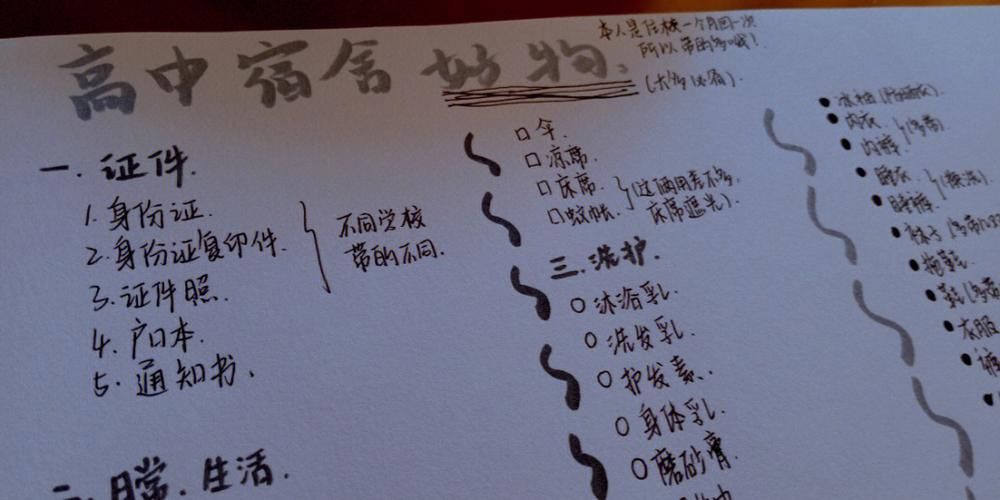 高中宿舍好物.
本人是住校一个月回一次
所以带的多哦!
(大多必看).
一. 证件.
1. 身份证.
2. 身份证复印件.
3. 证件照.
4. 户口本.
5. 通知书.
不同学校
带的不同.
二. 日常. 生活.
伞.
凉席.
床席.
蚊帐.
(这俩用差不多,
床席遮光).
三. 洗护.
沐浴乳.
洗发乳.
护发素.
身体乳.
磨砂膏.
内衣.
内裤.
(多带)
睡衣.
睡裤.
(换洗).
袜子
拖鞋.
鞋
衣服
裤